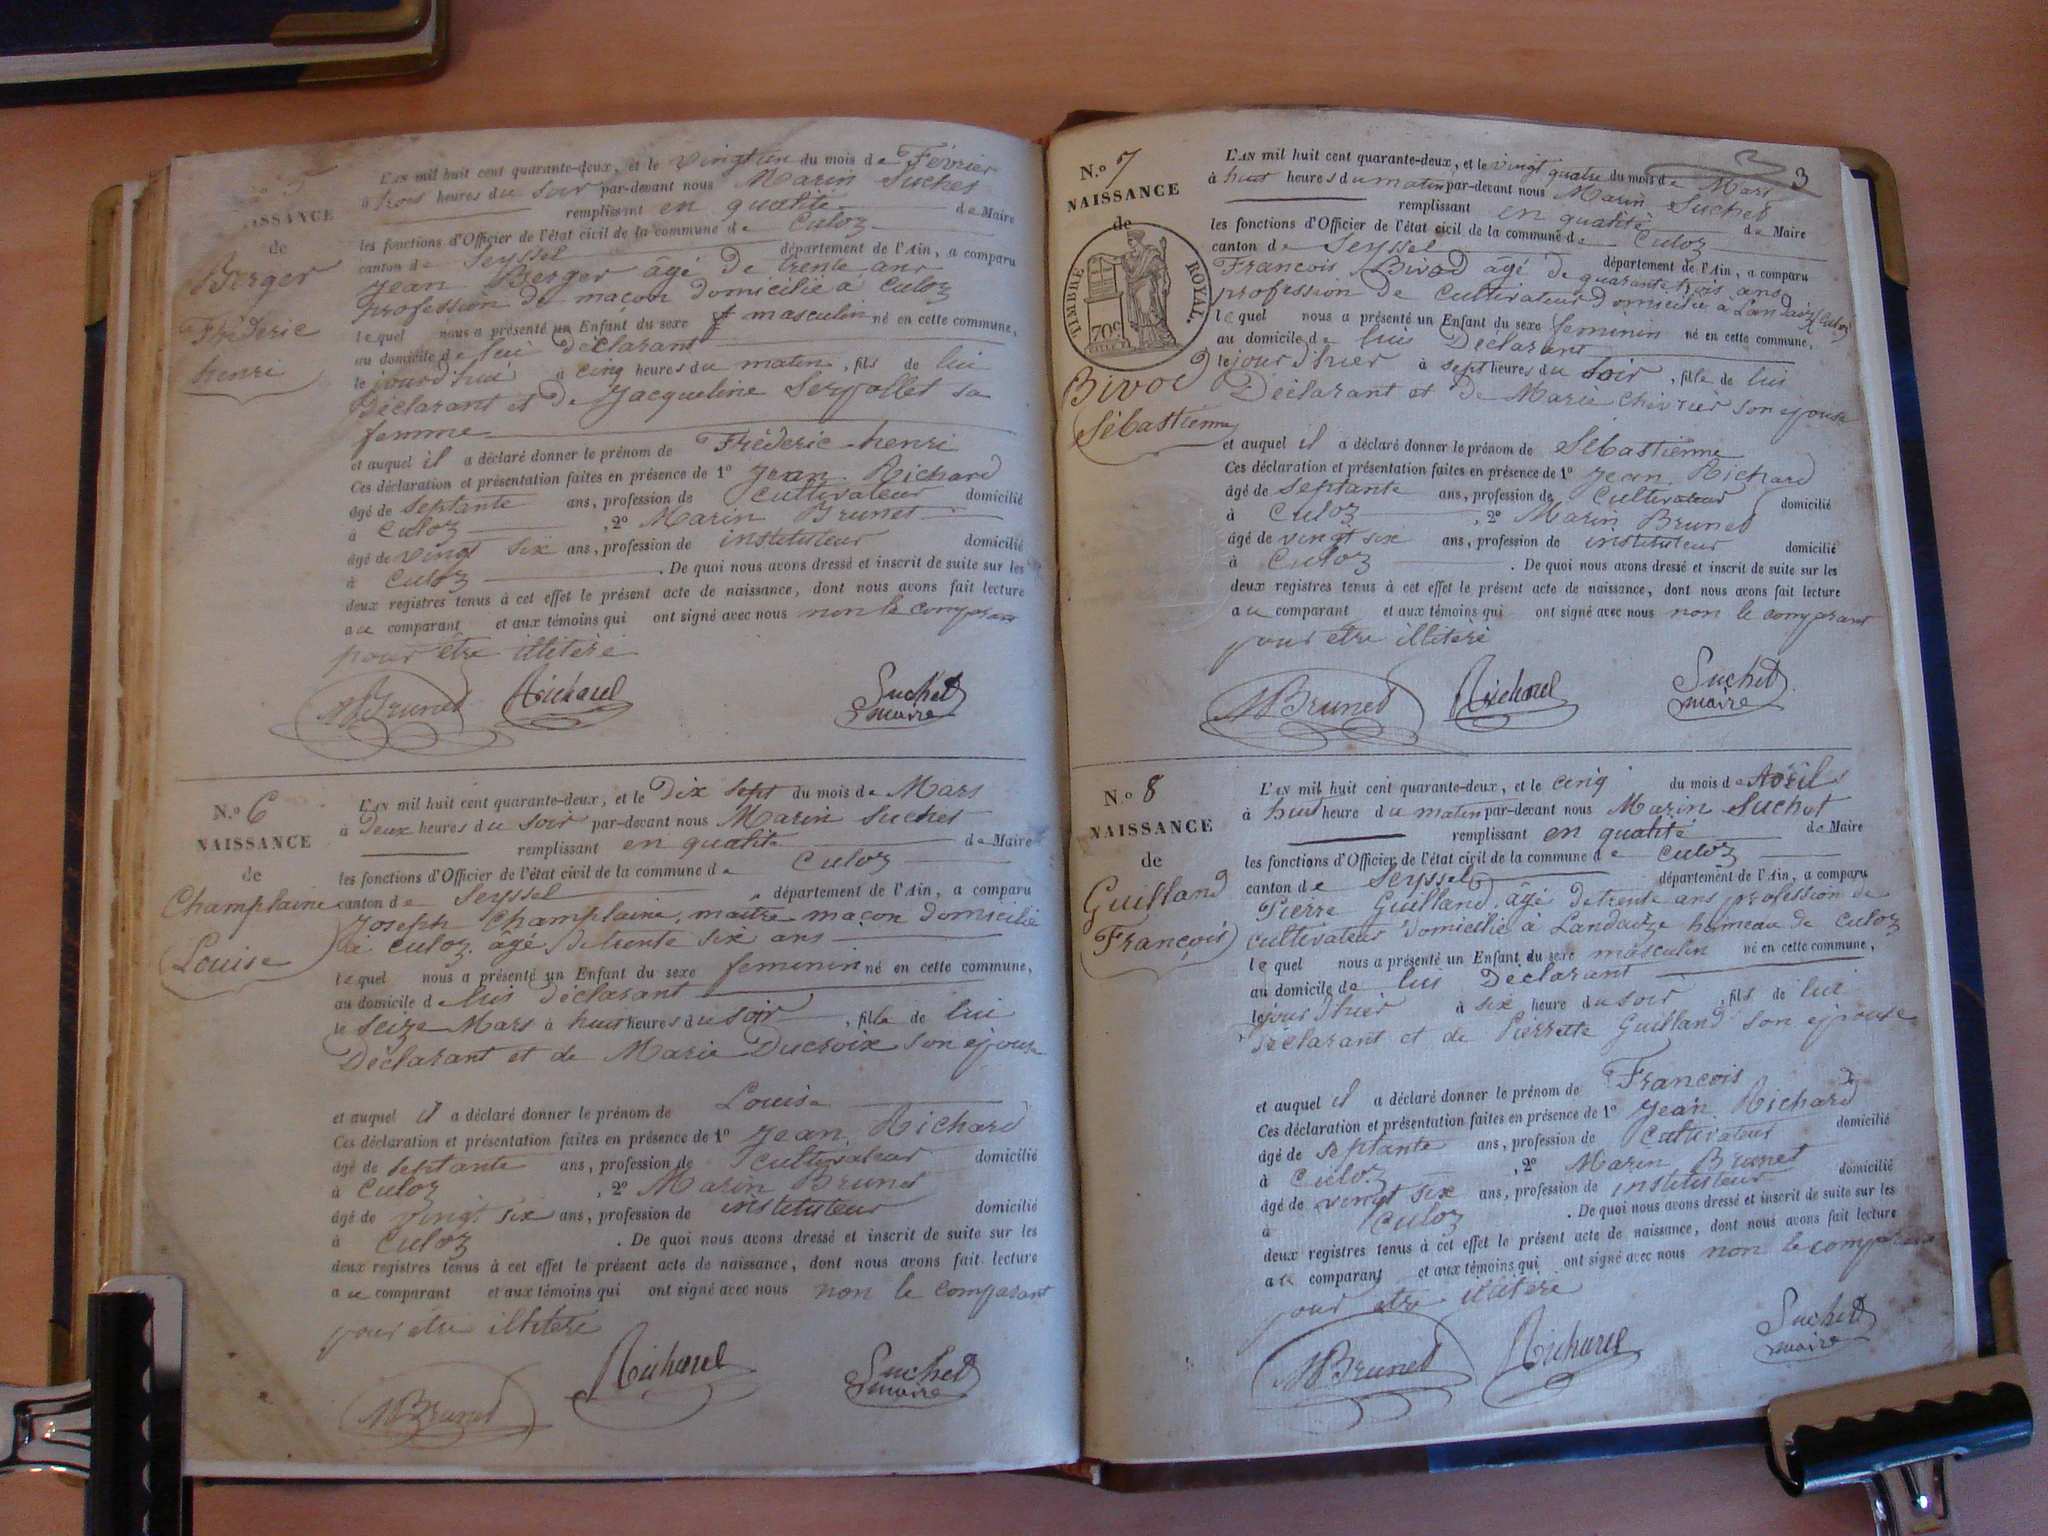 N.º 5
NAISSANCE
de
Berger
Fréderic
henri
L'AN mil huit cent quarante-deux, et le vingt un du mois de Février
à trois heures du soir par-devant nous Marin Suchet
remplissant en qualité de Maire
les fonctions d'Officier de l'état civil de la commune de Culoz
canton de Seyssel département de l'Ain, a comparu
Jean Berger âgé de trente ans
profession de maçon domicilié à Culoz
lequel nous a présenté un Enfant du sexe masculin né en cette commune,
au domicile de lui déclarant
le jourd'hui à cinq heures du matin, fils de lui
Déclarant et de Jacqueline Serpollet sa
femme
et auquel il a déclaré donner le prénom de Fréderic henri
Ces déclaration et présentation faites en présence de 1º Jean Richard
âgé de septante ans, profession de Cultivateur domicilié
à Culoz, 2º Marin Brunet
âgé de vingt six ans, profession de instituteur domicilié
à Culoz. De quoi nous avons dressé et inscrit de suite sur les
deux registres tenus à cet effet le présent acte de naissance, dont nous avons fait lecture
au comparant et aux témoins qui ont signé avec nous non le comparant
pour être illitéré
MBrunet Richard Suchet
maire
N.º 6
NAISSANCE
de
Champlaine
Louise
L'AN mil huit cent quarante-deux, et le Dix sept du mois de Mars
à Deux heures du soir par-devant nous Marin Suchet
remplissant en qualité de Maire
les fonctions d'Officier de l'état civil de la commune de Culoz
canton de Seyssel département de l'Ain, a comparu
Joseph Champlaine, maitre maçon domicilié
à Culoz âgé de trente six ans
lequel nous a présenté un Enfant du sexe feminin né en cette commune,
au domicile de lui déclarant
le seize Mars à huit heures du soir, fille de lui
Déclarant et de Marie Ducroix son épouse
et auquel il a déclaré donner le prénom de Louise
Ces déclaration et présentation faites en présence de 1º Jean Richard
âgé de septante ans, profession de cultivateur domicilié
à Culoz, 2º Marin Brunet
âgé de vingt six ans, profession de instituteur domicilié
à Culoz. De quoi nous avons dressé et inscrit de suite sur les
deux registres tenus à cet effet le présent acte de naissance, dont nous avons fait lecture
au comparant et aux témoins qui ont signé avec nous non le comparant
pour être illitéré
MBrunet Richard Suchet
maire
3
N.º 7
NAISSANCE
de
TIMBRE ROYAL.
70c
Bivod
Sébastienne
L'AN mil huit cent quarante-deux, et le vingt quatre du mois de Mars
à huit heures du matin par-devant nous Marin Suchet
remplissant en qualité de Maire
les fonctions d'Officier de l'état civil de la commune de Culoz
canton de Seyssel département de l'Ain, a comparu
François Bivod âgé de quarante trois ans
profession de Cultivateur domicilié à Landaize Culoz
lequel nous a présenté un Enfant du sexe feminin né en cette commune,
au domicile de lui Déclarant
le jour d'hier à sept heures du soir, fille de lui
Déclarant et de Marie Chevrier son épouse
et auquel il a déclaré donner le prénom de Sébastienne
Ces déclaration et présentation faites en présence de 1º Jean Richard
âgé de septante ans, profession de Cultivateur domicilié
à Culoz, 2º Marin Brunet
âgé de vingt six ans, profession de instituteur domicilié
à Culoz. De quoi nous avons dressé et inscrit de suite sur les
deux registres tenus à cet effet le présent acte de naissance, dont nous avons fait lecture
au comparant et aux témoins qui ont signé avec nous non le comparant
pour être illitéré
MBrunet Richard Suchet
maire
N.º 8
NAISSANCE
de
Guilland
François
L'AN mil huit cent quarante-deux, et le cinq du mois de Avril
à huit heure du matin par-devant nous Marin Suchet
remplissant en qualité de Maire
les fonctions d'Officier de l'état civil de la commune de Culoz
canton de Seyssel département de l'Ain, a comparu
Pierre Guilland âgé de trente ans profession de
cultivateur domicilié à Landaize hameau de Culoz
lequel nous a présenté un Enfant du sexe masculin né en cette commune,
au domicile de lui Déclarant
le jour d'hier à six heure du soir, fils de lui
déclarant et de Pierrette Guilland son épouse
et auquel il a déclaré donner le prénom de François
Ces déclaration et présentation faites en présence de 1º Jean Richard
âgé de septante ans, profession de Cultivateur domicilié
à Culoz, 2º Marin Brunet
âgé de vingt six ans, profession de instituteur domicilié
à Culoz. De quoi nous avons dressé et inscrit de suite sur les
deux registres tenus à cet effet le présent acte de naissance, dont nous avons fait lecture
au comparant et aux témoins qui ont signé avec nous non le comparant
pour être illitéré
MBrunet Richard Suchet
maire